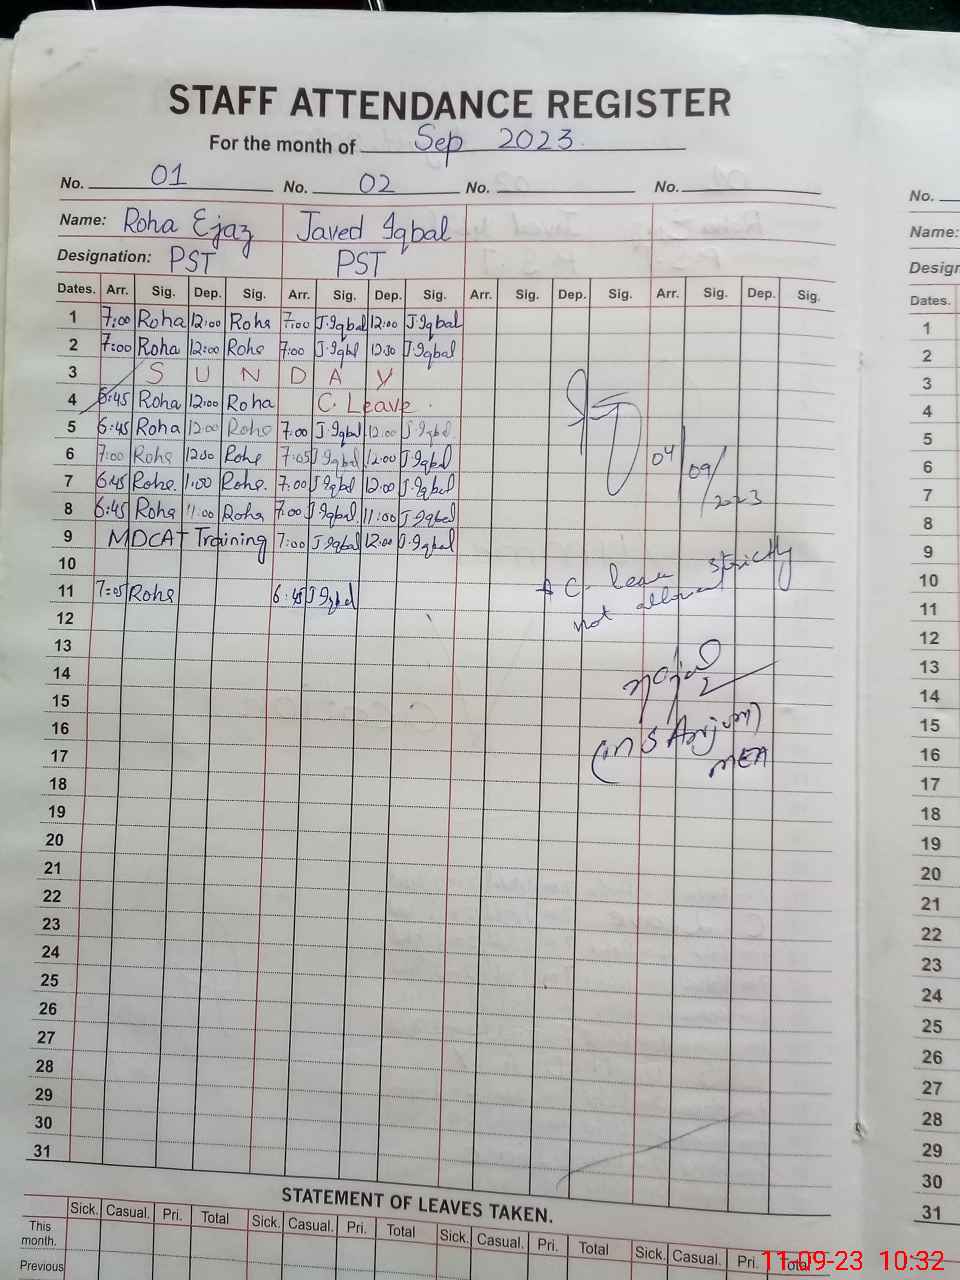 STAFF ATTENDANCE REGISTER
For the month of Sep 2023.
No. 01 No. 02 No. No.
Name: Roha Ejaz Javed Iqbal
Designation: PST PST
Dates. Arr. Sig. Dep. Sig. Arr. Sig. Dep. Sig. Arr. Sig. Dep. Sig. Arr. Sig. Dep. Sig.
1 7:00 Roha 12:00 Roha 7:00 J.Iqbal 12:00 J.Iqbal
2 7:00 Roha 12:00 Roha 7:00 J.Iqbal 12:30 J.Iqbal
3 S U N D A Y
4 6:45 Roha 12:00 Roha C. Leave.
5 6:45 Roha 12:00 Roha 7:00 J.Iqbal 12:00 J.Iqbal
6 7:00 Roha 12:30 Roha 7:05 J.Iqbal 12:00 J.Iqbal
7 6:45 Roha. 1:00 Roha. 7:00 J.Iqbal 12:00 J.Iqbal
8 6:45 Roha 11:00 Roha 7:00 J.Iqbal 11:00 J.Iqbal
9 MDCAT Training 7:00 J.Iqbal 12:00 J.Iqbal
10
11 7:05 Roha 6:45 J.Iqbal
12
13
14
15
16
17
18
19
20
21
22
23
24
25
26
27
28
29
30
31
04/09/2023
C. leave strictly
not allowed
(M S Anjum)
MEA
STATEMENT OF LEAVES TAKEN.
Sick. Casual. Pri. Total Sick. Casual. Pri. Total Sick. Casual. Pri. Total Sick. Casual. Pri. Total
This
month.
Previous
No.
Name:
Design
Dates.
1
2
3
4
5
6
7
8
9
10
11
12
13
14
15
16
17
18
19
20
21
22
23
24
25
26
27
28
29
30
31
11-09-23 10:32